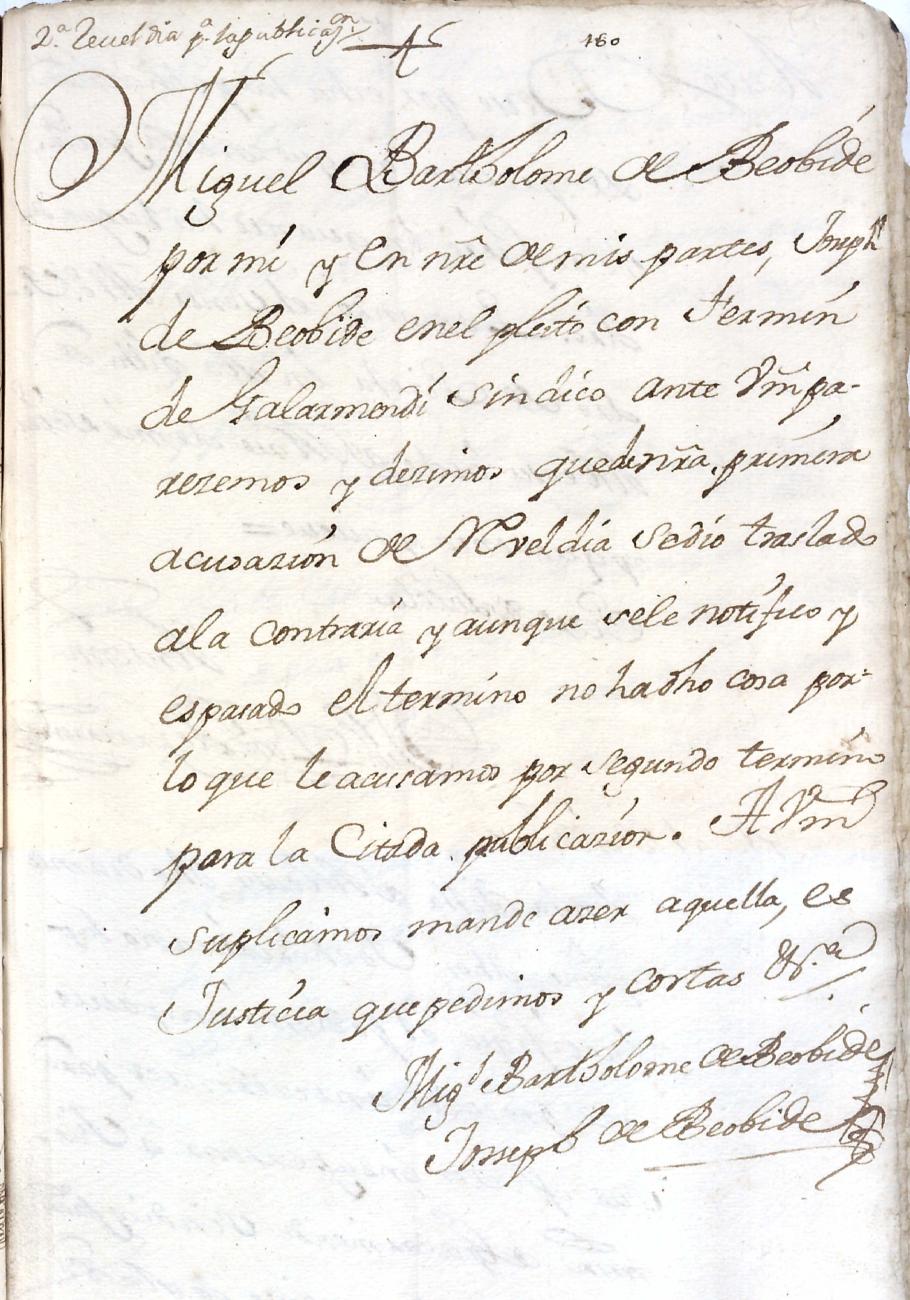 2.ª Reveldia pª la publicaᵒⁿ
180
Miguel Bartholome de Beobide
por mi y en nrẽ de mis partes, Joseph
de Beobide enel pleito con Fermin
de Galarmendi Sindico ante Vm̃ pa-
rezemos y dezimos quede nrã primera
acusazion de Rveldia sedio traslado
ala Contraria y aunque sele notifico y
espasado el termino no ha dho cosa por=
lo que le acusamos por segundo termino
para la Citada publicazion. A Vmd
suplicamos mande azer aquella, es
Justicia que pedimos y Cortas &ª
Migl Bartholome de Beobide
Joseph de Beobide